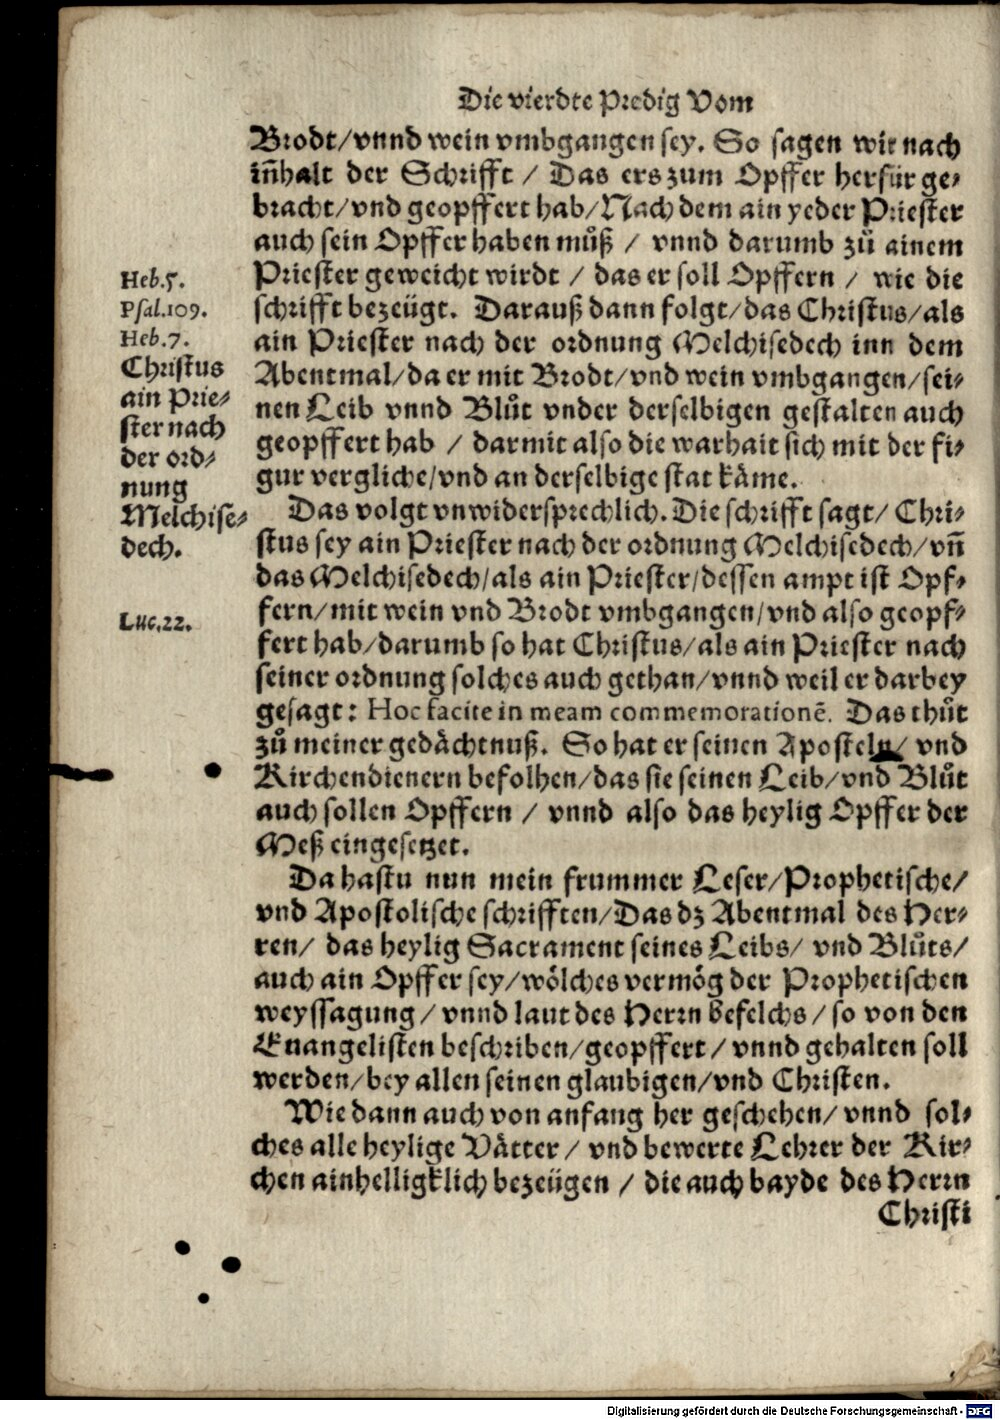 Die vierdte Predig Vom
Brodt/vnnd wein vmbgangen sey. So sagen wir nach
iñhalt der Schrifft / Das ers zum Opffer herfür ge-
bracht/vnd geopffert hab/Nach dem ain yeder Priester
auch sein Opffer haben müß / vnnd darumb zů ainem
Priester geweicht wirdt / das er soll Opffern / wie die
schrifft bezeügt. Darauß dann folgt/das Christus/als
ain Priester nach der ordnung Melchisedech inn dem
Abentmal/da er mit Brodt/vnd wein vmbgangen/sei-
nen Leib vnnd Blůt vnder derselbigen gestalten auch
geopffert hab / darmit also die warhait sich mit der fi-
gur vergliche/vnd an derselbige stat käme.
Das volgt vnwidersprechlich. Die schrifft sagt/ Chri-
stus sey ain Priester nach der ordnung Melchisedech/vñ
das Melchisedech/als ain Priester/dessen ampt ist Opf-
fern/mit wein vnd Brodt vmbgangen/vnd also geopf-
fert hab/darumb so hat Christus/als ain Priester nach
seiner ordnung solches auch gethan/vnnd weil er darbey
gesagt: Hoc facite in meam commemorationē. Das thůt
zů meiner gedächtnuß. So hat er seinen Aposteln/ vnd
Kirchendienern befolhen/das sie seinen Leib/vnd Blůt
auch sollen Opffern / vnnd also das heylig Opffer der
Meß eingesetzet.
Da hastu nun mein frummer Leser/Prophetische/
vnd Apostolische schrifften/Das dz Abentmal des Her-
ren/ das heylig Sacrament seines Leibs/ vnd Blůts/
auch ain Opffer sey/wölches vermög der Prophetischen
weyssagung/vnnd laut des Herrn befelchs/so von den
Euangelisten beschriben/geopffert/vnnd gehalten soll
werden/bey allen seinen glaubigen/vnd Christen.
Wie dann auch von anfang her geschehen/vnnd sol-
ches alle heylige Vätter / vnd bewerte Lehrer der Kir-
chen ainhelligklich bezeügen / die auch bayde des Herrn
Christi
Heb.5.
Psal.109.
Heb.7.
Christus
ain Prie-
ster nach
der ord-
nung
Melchise-
dech.
Luc.22.
Digitalisierung gefördert durch die Deutsche Forschungsgemeinschaft - DFG